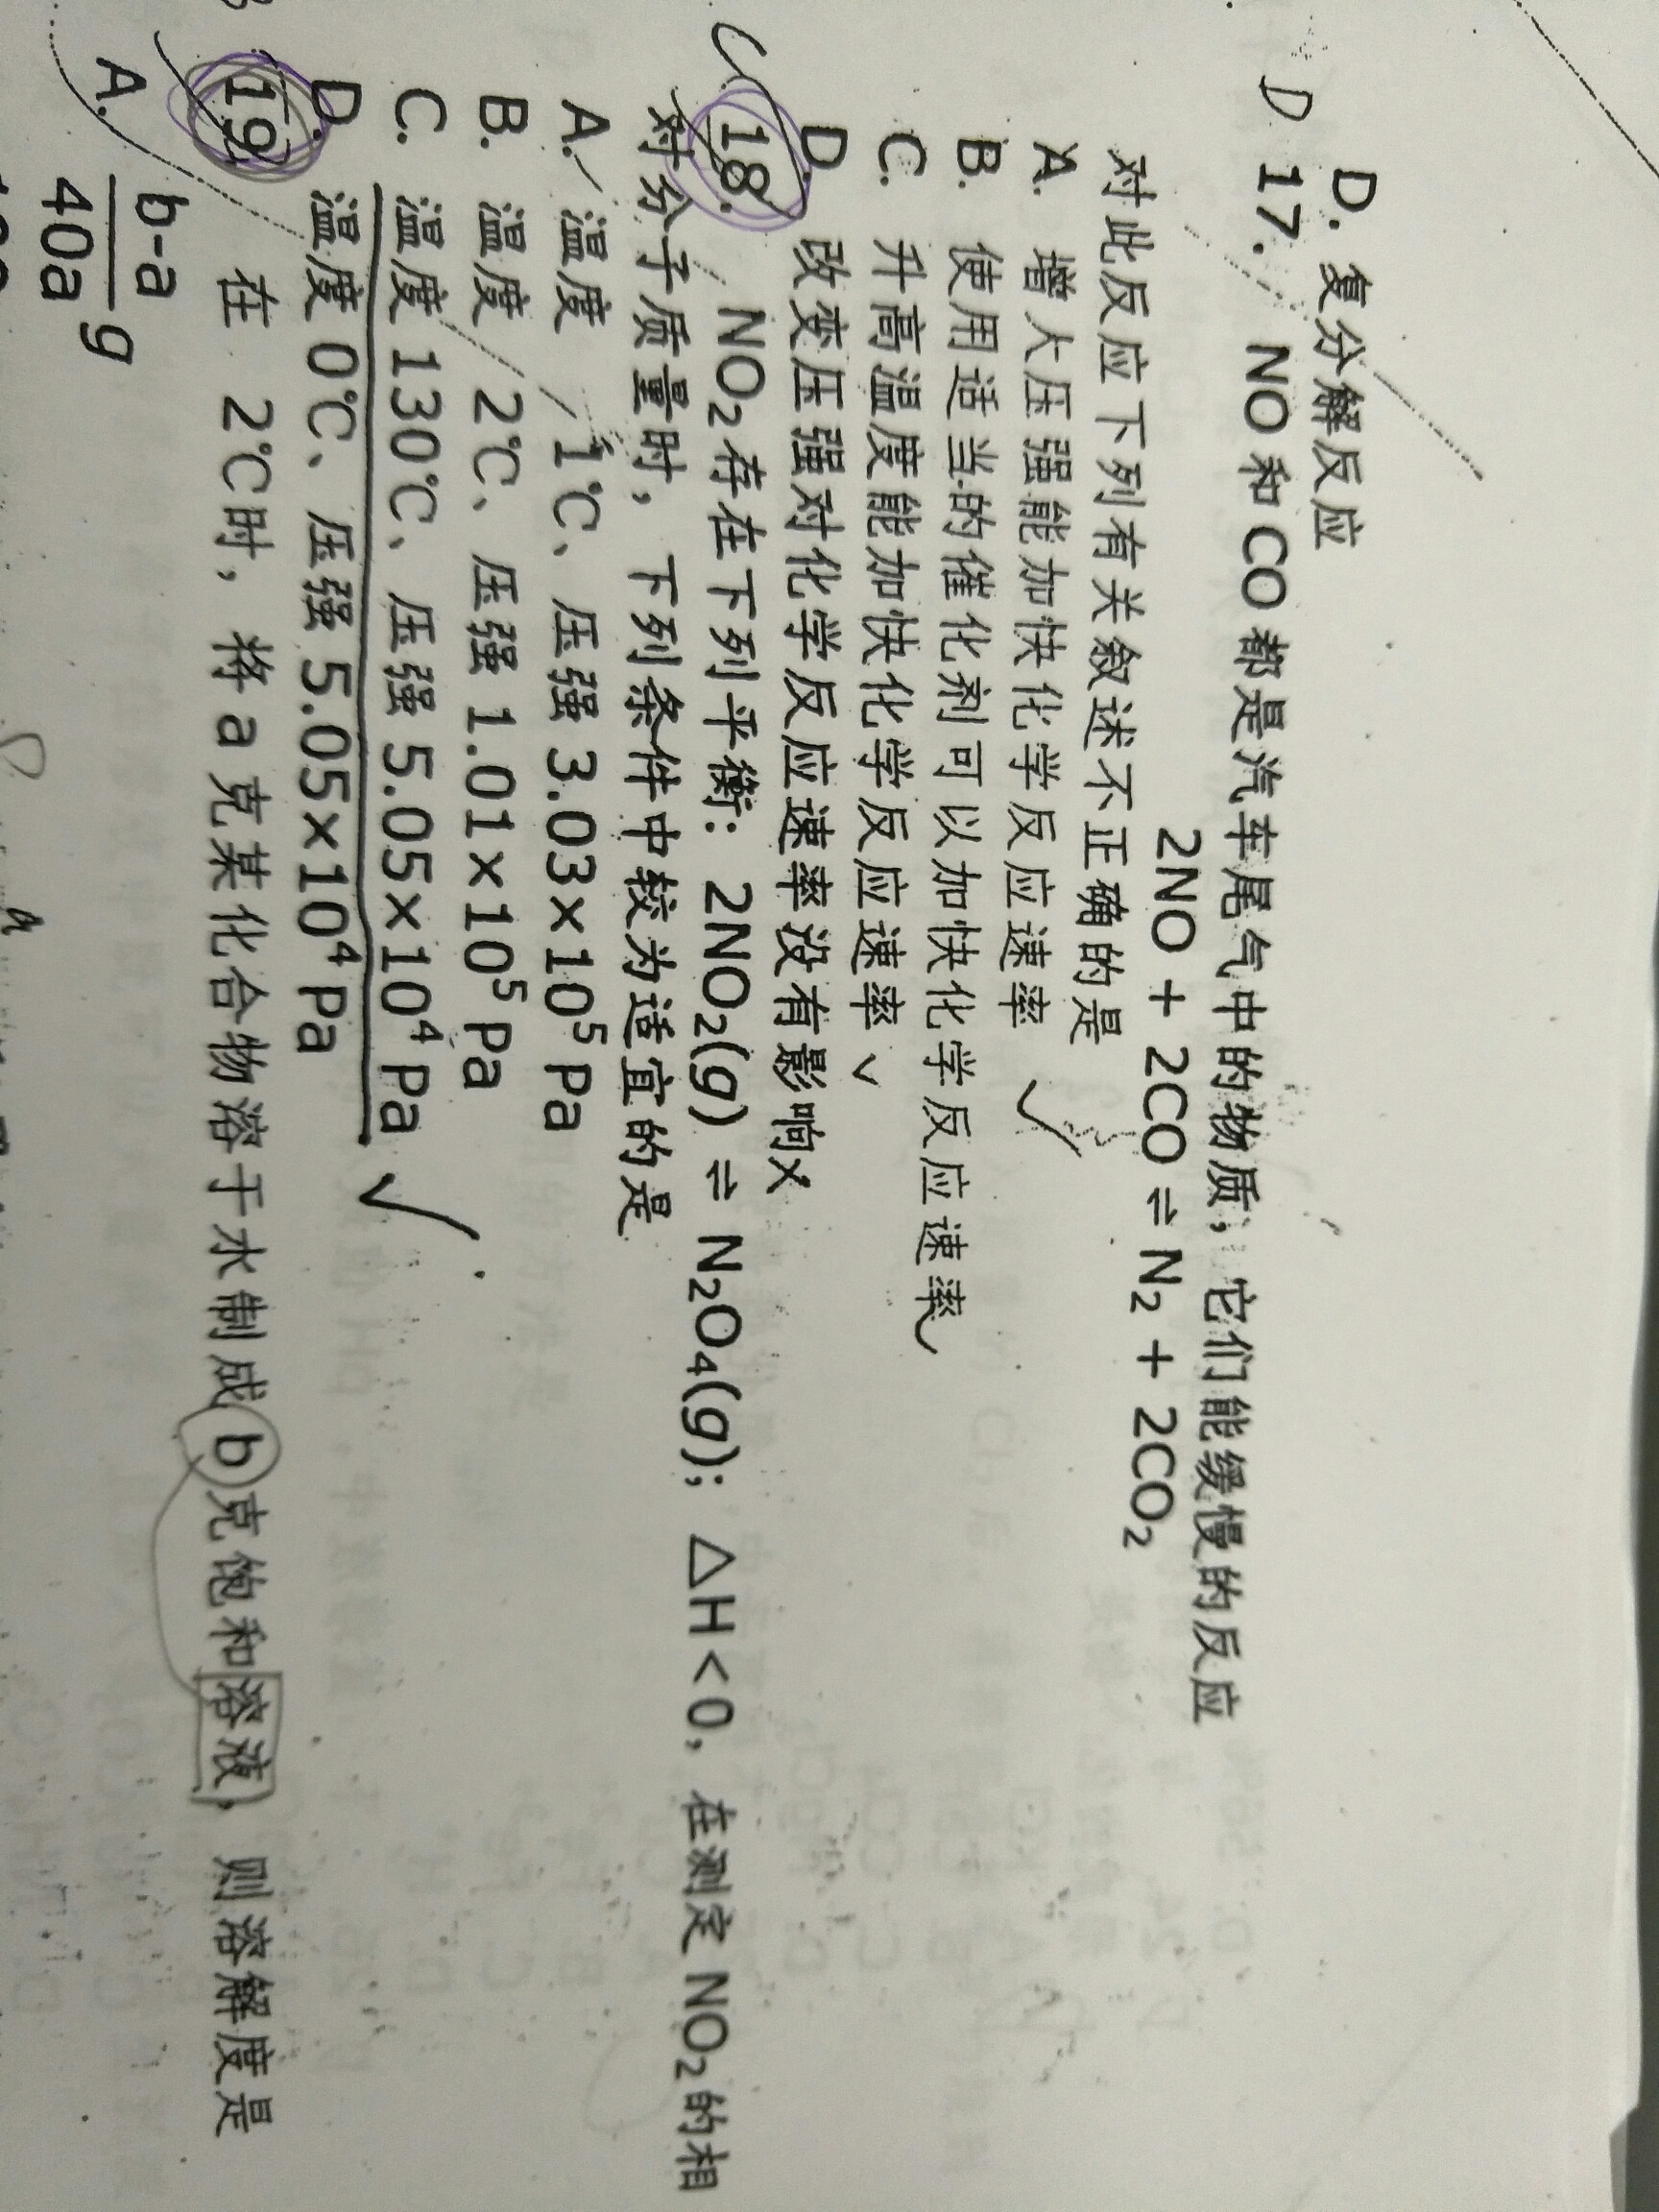 D. 复分解反应
D 17. NO 和 CO 都是汽车尾气中的物质，它们能缓慢的反应
2NO + 2CO ⇌ N₂ + 2CO₂
对此反应下列有关叙述不正确的是
A. 增大压强能加快化学反应速率 ✓
B. 使用适当的催化剂可以加快化学反应速率 ✓
C. 升高温度能加快化学反应速率 ✓
D. 改变压强对化学反应速率没有影响 ×
C 18. NO₂存在下列平衡：2NO₂(g) ⇌ N₂O₄(g)；△H<0，在测定 NO₂的相
对分子质量时，下列条件中较为适宜的是
A. 温度 1℃、压强 3.03×10⁵ Pa
B. 温度 2℃、压强 1.01×10⁵ Pa
C. 温度 130℃、压强 5.05×10⁴ Pa ✓
D. 温度 0℃、压强 5.05×10⁴ Pa
19. 在 2℃时，将 a 克某化合物溶于水制成 b 克饱和溶液，则溶解度是
A. b-a/40a g